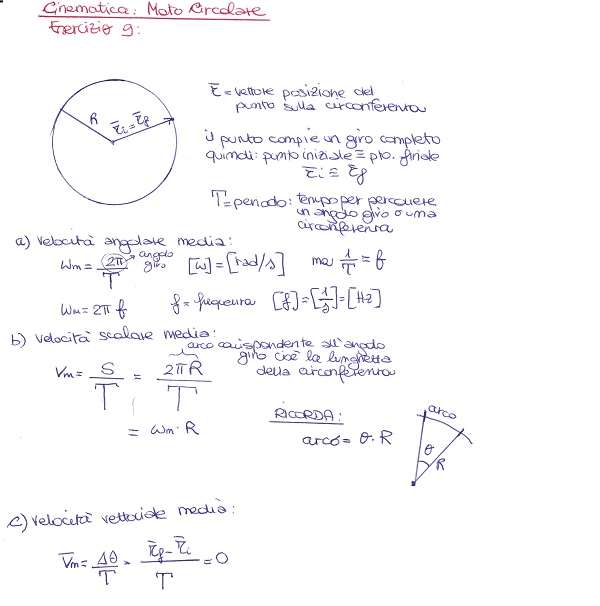 Cinematica: Moto Circolare
Esercizio 9:
r̄ = vettore posizione del
punto sulla circonferenza
R
r̄i = r̄f
il punto compie un giro completo
quindi: punto iniziale ≡ pto. finale
r̄i ≡ r̄f
T = periodo: tempo per percorrere
un angolo giro o una
circonferenza
a) velocità angolare media:
ωm = 2π/T → angolo giro [ω] = [rad/s] ma 1/T = f
ωm = 2π f f = frequenza [f] = [1/s] = [Hz]
b) velocità scalare media:
arco corrispondente all'angolo
giro cioè la lunghezza
della circonferenza
Vm = S/T = 2πR/T
= ωm · R
RICORDA:
arco = θ · R
arco
θ
R
c) velocità vettoriale media:
V̄m = Δθ/T = (r̄f - r̄i)/T = 0